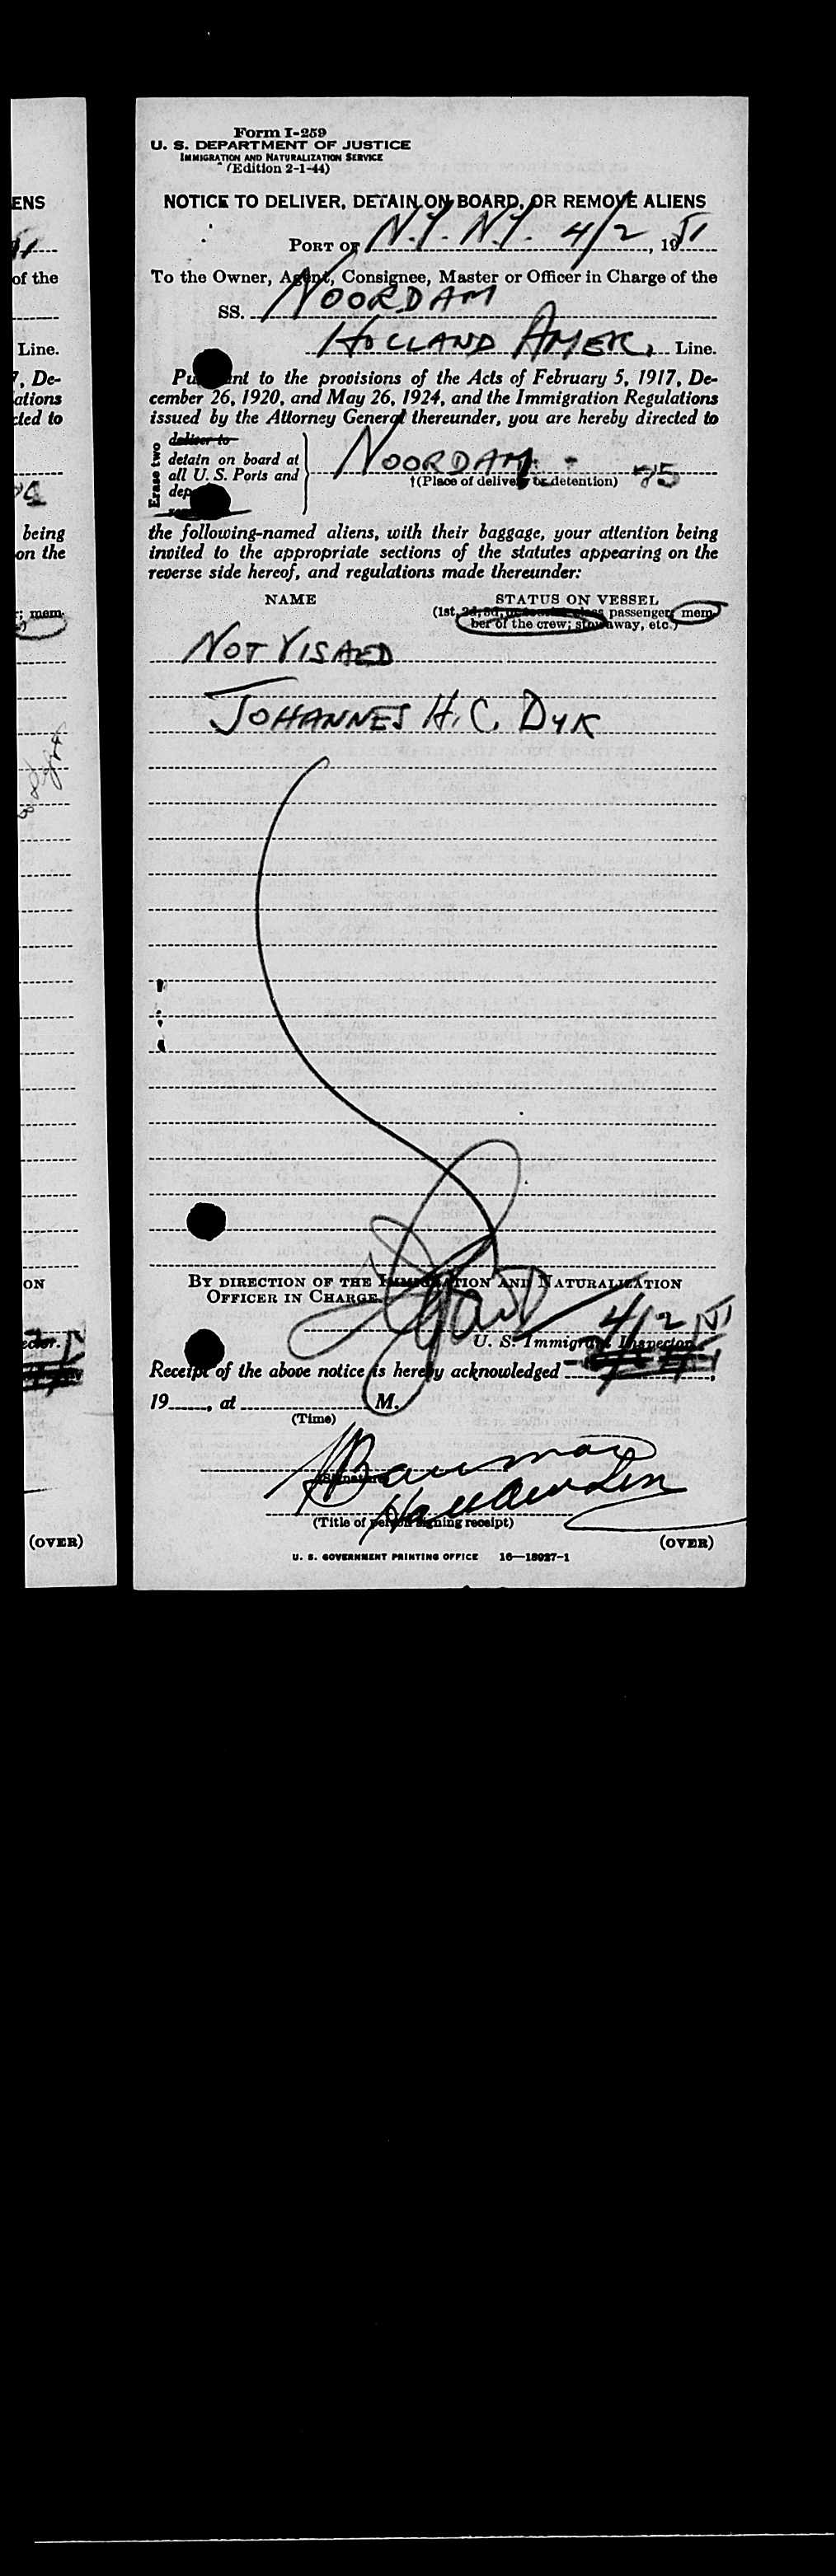 ENS
51
of the
Line.
7, De-
ations
cted to
being
on the
; mem-
ON
ector.
(OVER)
Form I-259
U. S. DEPARTMENT OF JUSTICE
IMMIGRATION AND NATURALIZATION SERVICE
(Edition 2-1-44)
NOTICE TO DELIVER, DETAIN ON BOARD, OR REMOVE ALIENS
PORT OF N.Y. N.Y. 4/2, 1951
To the Owner, Agent, Consignee, Master or Officer in Charge of the
SS. NOORDAM
HOLLAND AMER. Line.
Pursuant to the provisions of the Acts of February 5, 1917, De-
cember 26, 1920, and May 26, 1924, and the Immigration Regulations
issued by the Attorney General thereunder, you are hereby directed to
Erase two
deliver to
detain on board at
all U. S. Ports and
dep
NOORDAM - 75
†(Place of delivery or detention)
the following-named aliens, with their baggage, your attention being
invited to the appropriate sections of the statutes appearing on the
reverse side hereof, and regulations made thereunder:
NAME STATUS ON VESSEL
(1st, 2d, 3d, or tourist class passenger; mem-
ber of the crew; stowaway, etc.)
NOT VISAED
JOHANNES H. C. DYK
BY DIRECTION OF THE IMMIGRATION AND NATURALIZATION
OFFICER IN CHARGE
4/2 51
U. S. Immigrant Inspector.
Receipt of the above notice is hereby acknowledged
19, at M.
(Time)
(Signature)
(Title of person signing receipt)
(OVER)
U. S. GOVERNMENT PRINTING OFFICE 16—18027-1